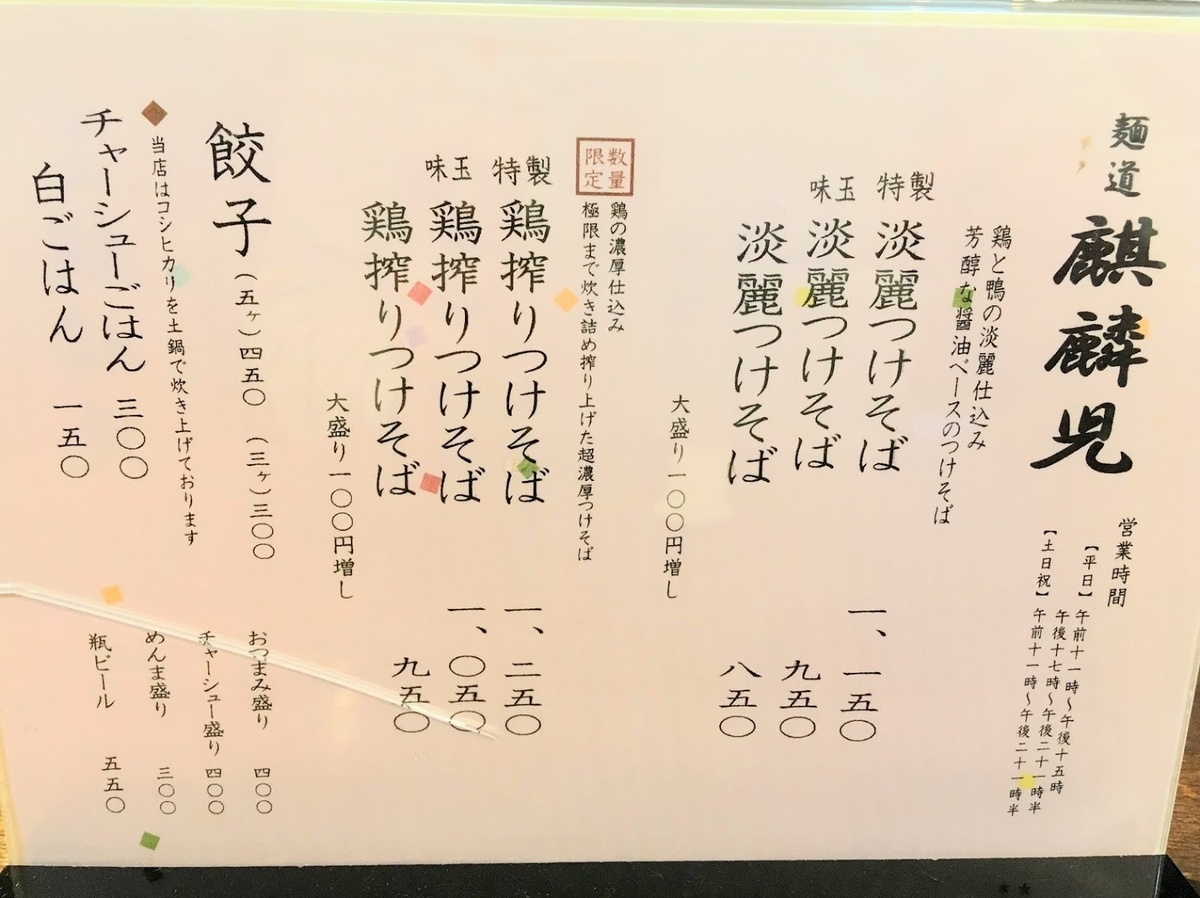 麺道 麒麟児
営業時間
【平日】午前十一時〜午後十五時
午後十七時〜午後二十一時半
【土日祝】午前十一時〜午後二十一時半
鶏と鴨の淡麗仕込み
芳醇な醤油ベースのつけそば
特製 淡麗つけそば 一、一五〇
味玉 淡麗つけそば 九五〇
淡麗つけそば 八五〇
大盛り一〇〇円増し
数量限定
鶏の濃厚仕込み
極限まで炊き詰め搾り上げた超濃厚つけそば
特製 鶏搾りつけそば 一、二五〇
味玉 鶏搾りつけそば 一、〇五〇
鶏搾りつけそば 九五〇
大盛り一〇〇円増し
餃子(五ヶ)四五〇 (三ヶ)三〇〇
当店はコシヒカリを土鍋で炊き上げております
チャーシューごはん 三〇〇
白ごはん 一五〇
おつまみ盛り 四〇〇
チャーシュー盛り 四〇〇
めんま盛り 三〇〇
瓶ビール 五五〇